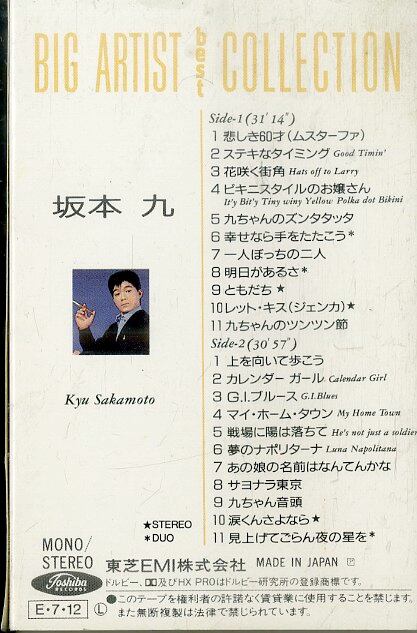 BIG ARTIST best COLLECTION
坂本 九
Kyu Sakamoto
Side-1 (31′14″)
1 悲しき60才(ムスターファ)
2 ステキなタイミング Good Timin'
3 花咲く街角 Hats off to Larry
4 ビキニスタイルのお嬢さん
It'y Bit'y Tiny winy Yellow Polka dot Bikini
5 九ちゃんのズンタタッタ
6 幸せなら手をたたこう*
7 一人ぼっちの二人
8 明日があるさ*
9 ともだち★
10 レット・キス(ジェンカ)★
11 九ちゃんのツンツン節
Side-2 (30′57″)
1 上を向いて歩こう
2 カレンダー ガール Calendar Girl
3 G.I.ブルース G.I.Blues
4 マイ・ホーム・タウン My Home Town
5 戦場に陽は落ちて He's not just a soldier
6 夢のナポリターナ Luna Napolitana
7 あの娘の名前はなんてんかな
8 サヨナラ東京
9 九ちゃん音頭
10 涙くんさよなら★
11 見上げてごらん夜の星を*
★STEREO
*DUO
MONO/
STEREO
東芝EMI株式会社 MADE IN JAPAN Ⓟ
Toshiba
RECORDS
ドルビー、及びHX PROはドルビー研究所の登録商標です。
E・7・12 Ⓛ
●このテープを権利者の許諾なく賃貸業に使用することを禁じます。
また無断複製は法律で禁じられています。